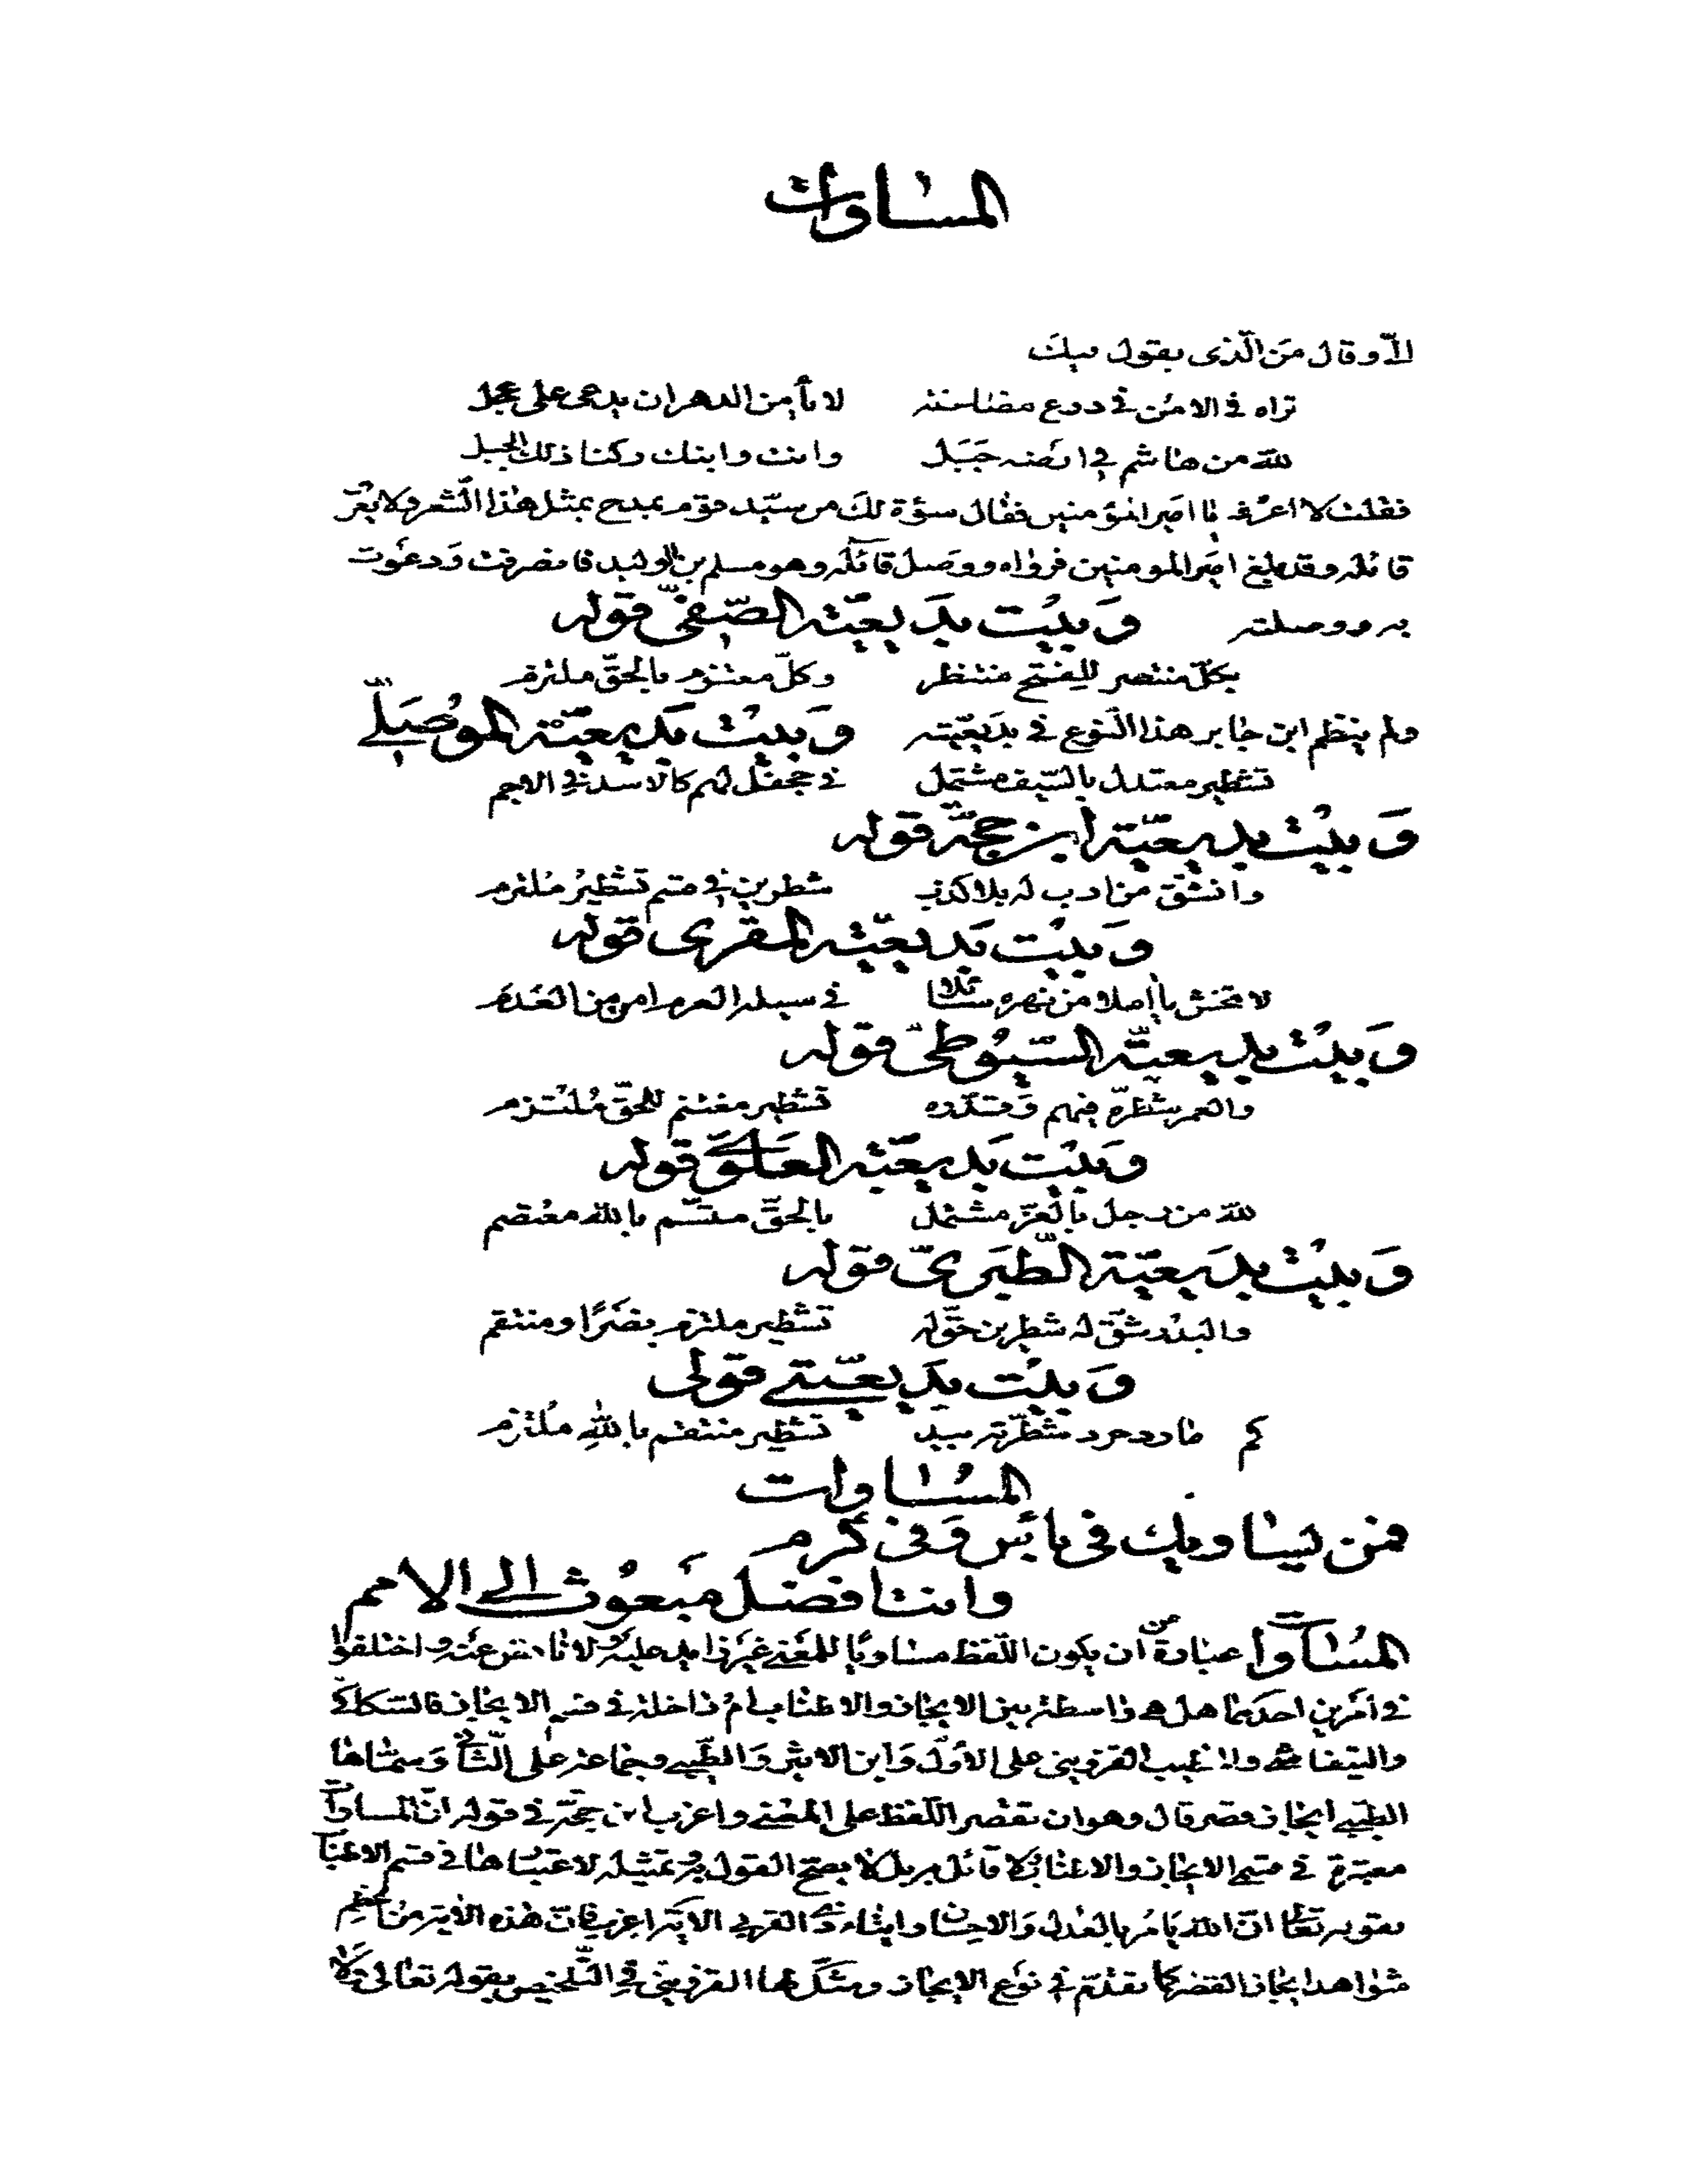 المساوات
الآ وقال من الّذى يقول فيك
تراه فى الامن فى درع مضاعفة لا يأمن الدهر ان يدعى على عجل
لله من هاشم فى ارضه جَبَل وانت وابنك ركنا ذلك الجبل
فقلت لا اعرفه يا امير المؤمنين فقال سوءة لك من سيّد قوم يمدح بمثل هذا الشعر ولا يعرف
قائله وقد بلغ امير المومنين فرواه ووصل قائله وهو مسلم بن الوليد فانصرفت ودعوت
به ووصلته وَبيت بديعيّته الصّفىّ قوله
بكلّ منتصر للفتح منتظر وكلّ معتزم بالحقّ ملتزم
ولم ينظم ابن جابر هذا النّوع فى بديعيّته وَبيت بديعيّته الموصلّى
تشطير معتدل بالسّيف مشتمل فى جحفل لهم كالاسد فى الاجم
وَبيت بديعيّة ابن حجّة قوله
وانشقّ من ادب له بلا كذب شطرين فى قسم تشطير ملتزم
وَبيت بديعيّته المقرى قوله
فى سيله العرم امن من العدم
وَبيت بديعيّة السّيوطىّ قوله
تشطير مغتنم للحقّ ملتزم
وَبيت بديعيّة العلوىّ قوله
لله من رجل بالعزّ مشتمل بالحقّ متّسم بالله معتصم
وَبيت بديعيّة الطّبرىّ قوله
والبدر شقّ له شطرين حقّ له تشطير ملتزم نصرًا ومنتقم
وَبيت بديعيّتى قولى
كم مارد حرد شطّرته بيد تشطير منتقم بالله ملتزم
المساوات
فمن يساويك فى بأس وفى كرم
وانت افضل مبعوث الى الامم
المساوا عبارة عن ان يكون اللّفظ مساويًا للمعنى غير زايد عليه ولا ناقص عنه واختلفوا
فى امرين احدهما هل هى واسطة بين الايجاز والاطناب ام داخلة فى قسم الايجاز فالسكاكى
القزوينى على الاوّل وَابن الاثير وَالطّيبى وجماعة على الثّانى وَسمّاها
الطيبى ايجاز قصر قال وهو ان تقصر اللّفظ على المعنى واغرب ابن حجّة فى قوله انّ المساوات
معتبرة فى قسمى الايجاز والاطناب ولا قائل به بل لا يصحّ القول به وتمثيله لاعتبارها فى قسم الاطناب
بقوله تعالى انّ الله يامر بالعدل والاحسان وايتاء ذى القربى الاية اغرب فانّ هذه الاية من اعظم
شواهد ايجاز القصر كما تقدّم فى نوع الايجاز ومثّل لها القزوينى فى التّلخيص بقوله تعالى ولا